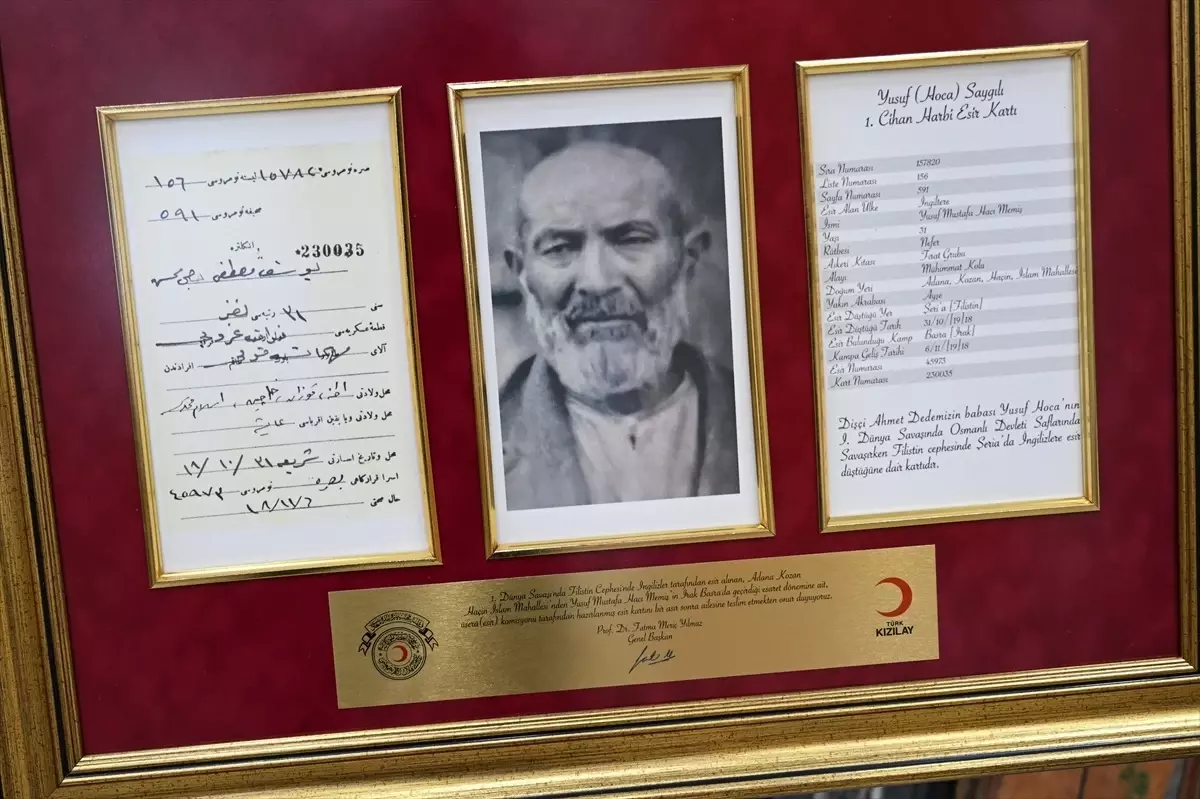 صره نومروسى ١٥٧٨٢٠ ليسته نومروسى ١٥٦
صحيفه نومروسى ٥٩١
انكلتره
230035
يوسف مصطفى حاجى
سنى ٣١ رتبه‌سى نفر
قطعۀ عسكريه‌سى
آلاى افرادندن
محل ولادتى
محل ولادتى وياقين اقرباسى
محل وتاريخ اسارتى شريعه ٣١/١٠/١٨
اسرا قرارگاهى بصره نومروسى ٤٥٩٧٣
١٨/١١/٦
Yusuf (Hoca) Saygılı
1. Cihan Harbi Esir Kartı
Sıra Numarası 157820
Liste Numarası 156
Sayfa Numarası 591
Esir Alan Ülke İngiltere
İsmi Yusuf Mustafa Hacı Memiş
Yaşı 31
Rütbesi Nefer
Askeri Kıtası Fırat Grubu
Alayı Mühimmat Kolu
Doğum Yeri Adana, Kozan, Haçin, İslam Mahallesi
Yakın Akrabası Ayşe
Esir Düştüğü Yer Şeri'a [Filistin]
Esir Düştüğü Tarih 31/10/[19]18
Esir Bulunduğu Kamp Basra [Irak]
Kampa Geliş Tarihi 6/11/[19]18
Esir Numarası 45973
Kart Numarası 230035
Dişçi Ahmet Dedemizin babası Yusuf Hoca'nın
I. Dünya Savaşında Osmanlı Devleti Saflarında
Savaşırken Filistin cephesinde Şeria'da İngilizlere esir
düştüğüne dair kartıdır.
1. Dünya Savaşı'nda Filistin Cephesi'nde İngilizler tarafından esir alınan, Adana Kozan
Haçin İslam Mahallesi'nden Yusuf Mustafa Hacı Memiş'in Irak Basra'da geçirdiği esaret dönemine ait,
üsera(esir) komisyonu tarafından hazırlanmış esir kartını bir asır sonra ailesine teslim etmekten onur duyuyoruz.
Prof. Dr. Fatma Meriç Yılmaz
Genel Başkan
TÜRK
KIZILAY